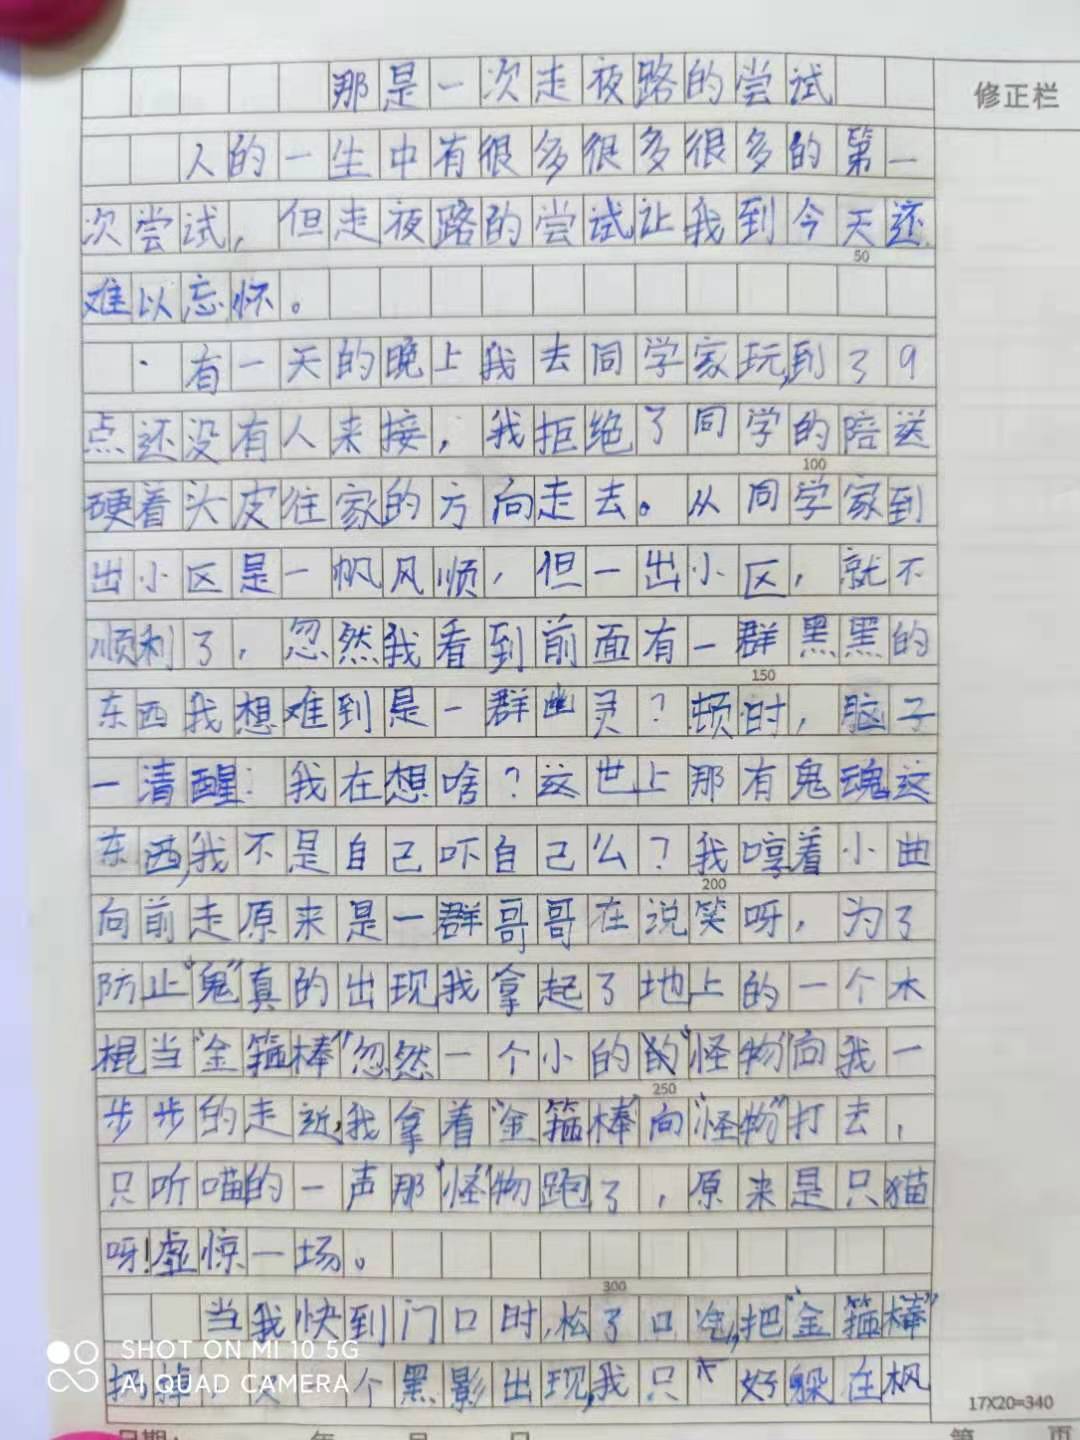 那是一次走夜路的尝试
修正栏
人的一生中有很多很多很多的第一
次尝试,但走夜路的尝试让我到今天还
50
难以忘怀。
有一天的晚上我去同学家玩,到了9
点还没有人来接,我拒绝了同学的陪送
100
硬着头皮往家的方向走去。从同学家到
出小区是一帆风顺,但一出小区,就不
顺利了,忽然我看到前面有一群黑黑的
150
东西我想难到是一群幽灵?顿时,脑子
一清醒:我在想啥?这世上那有鬼魂这
东西,我不是自己吓自己么?我哼着小曲
200
向前走原来是一群哥哥在说笑呀,为了
防止"鬼"真的出现我拿起了地上的一个木
棍当"金箍棒"忽然一个小的的"怪物"向我一
250
步步的走近,我拿着"金箍棒"向"怪物"打去,
只听喵的一声那"怪"物跑了,原来是只猫
呀!虚惊一场。
300
当我快到门口时,松了口气,把"金箍棒"
扔掉,个黑影出现,我只好躲在枫
SHOT ON MI 10 5G
AI QUAD CAMERA
17X20=340
日期: 年 月 日 第 页